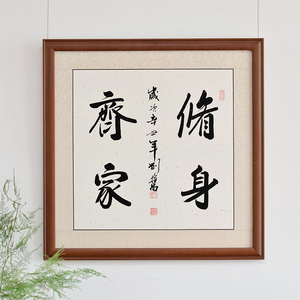 脩身
齊家
歲次辛丑年